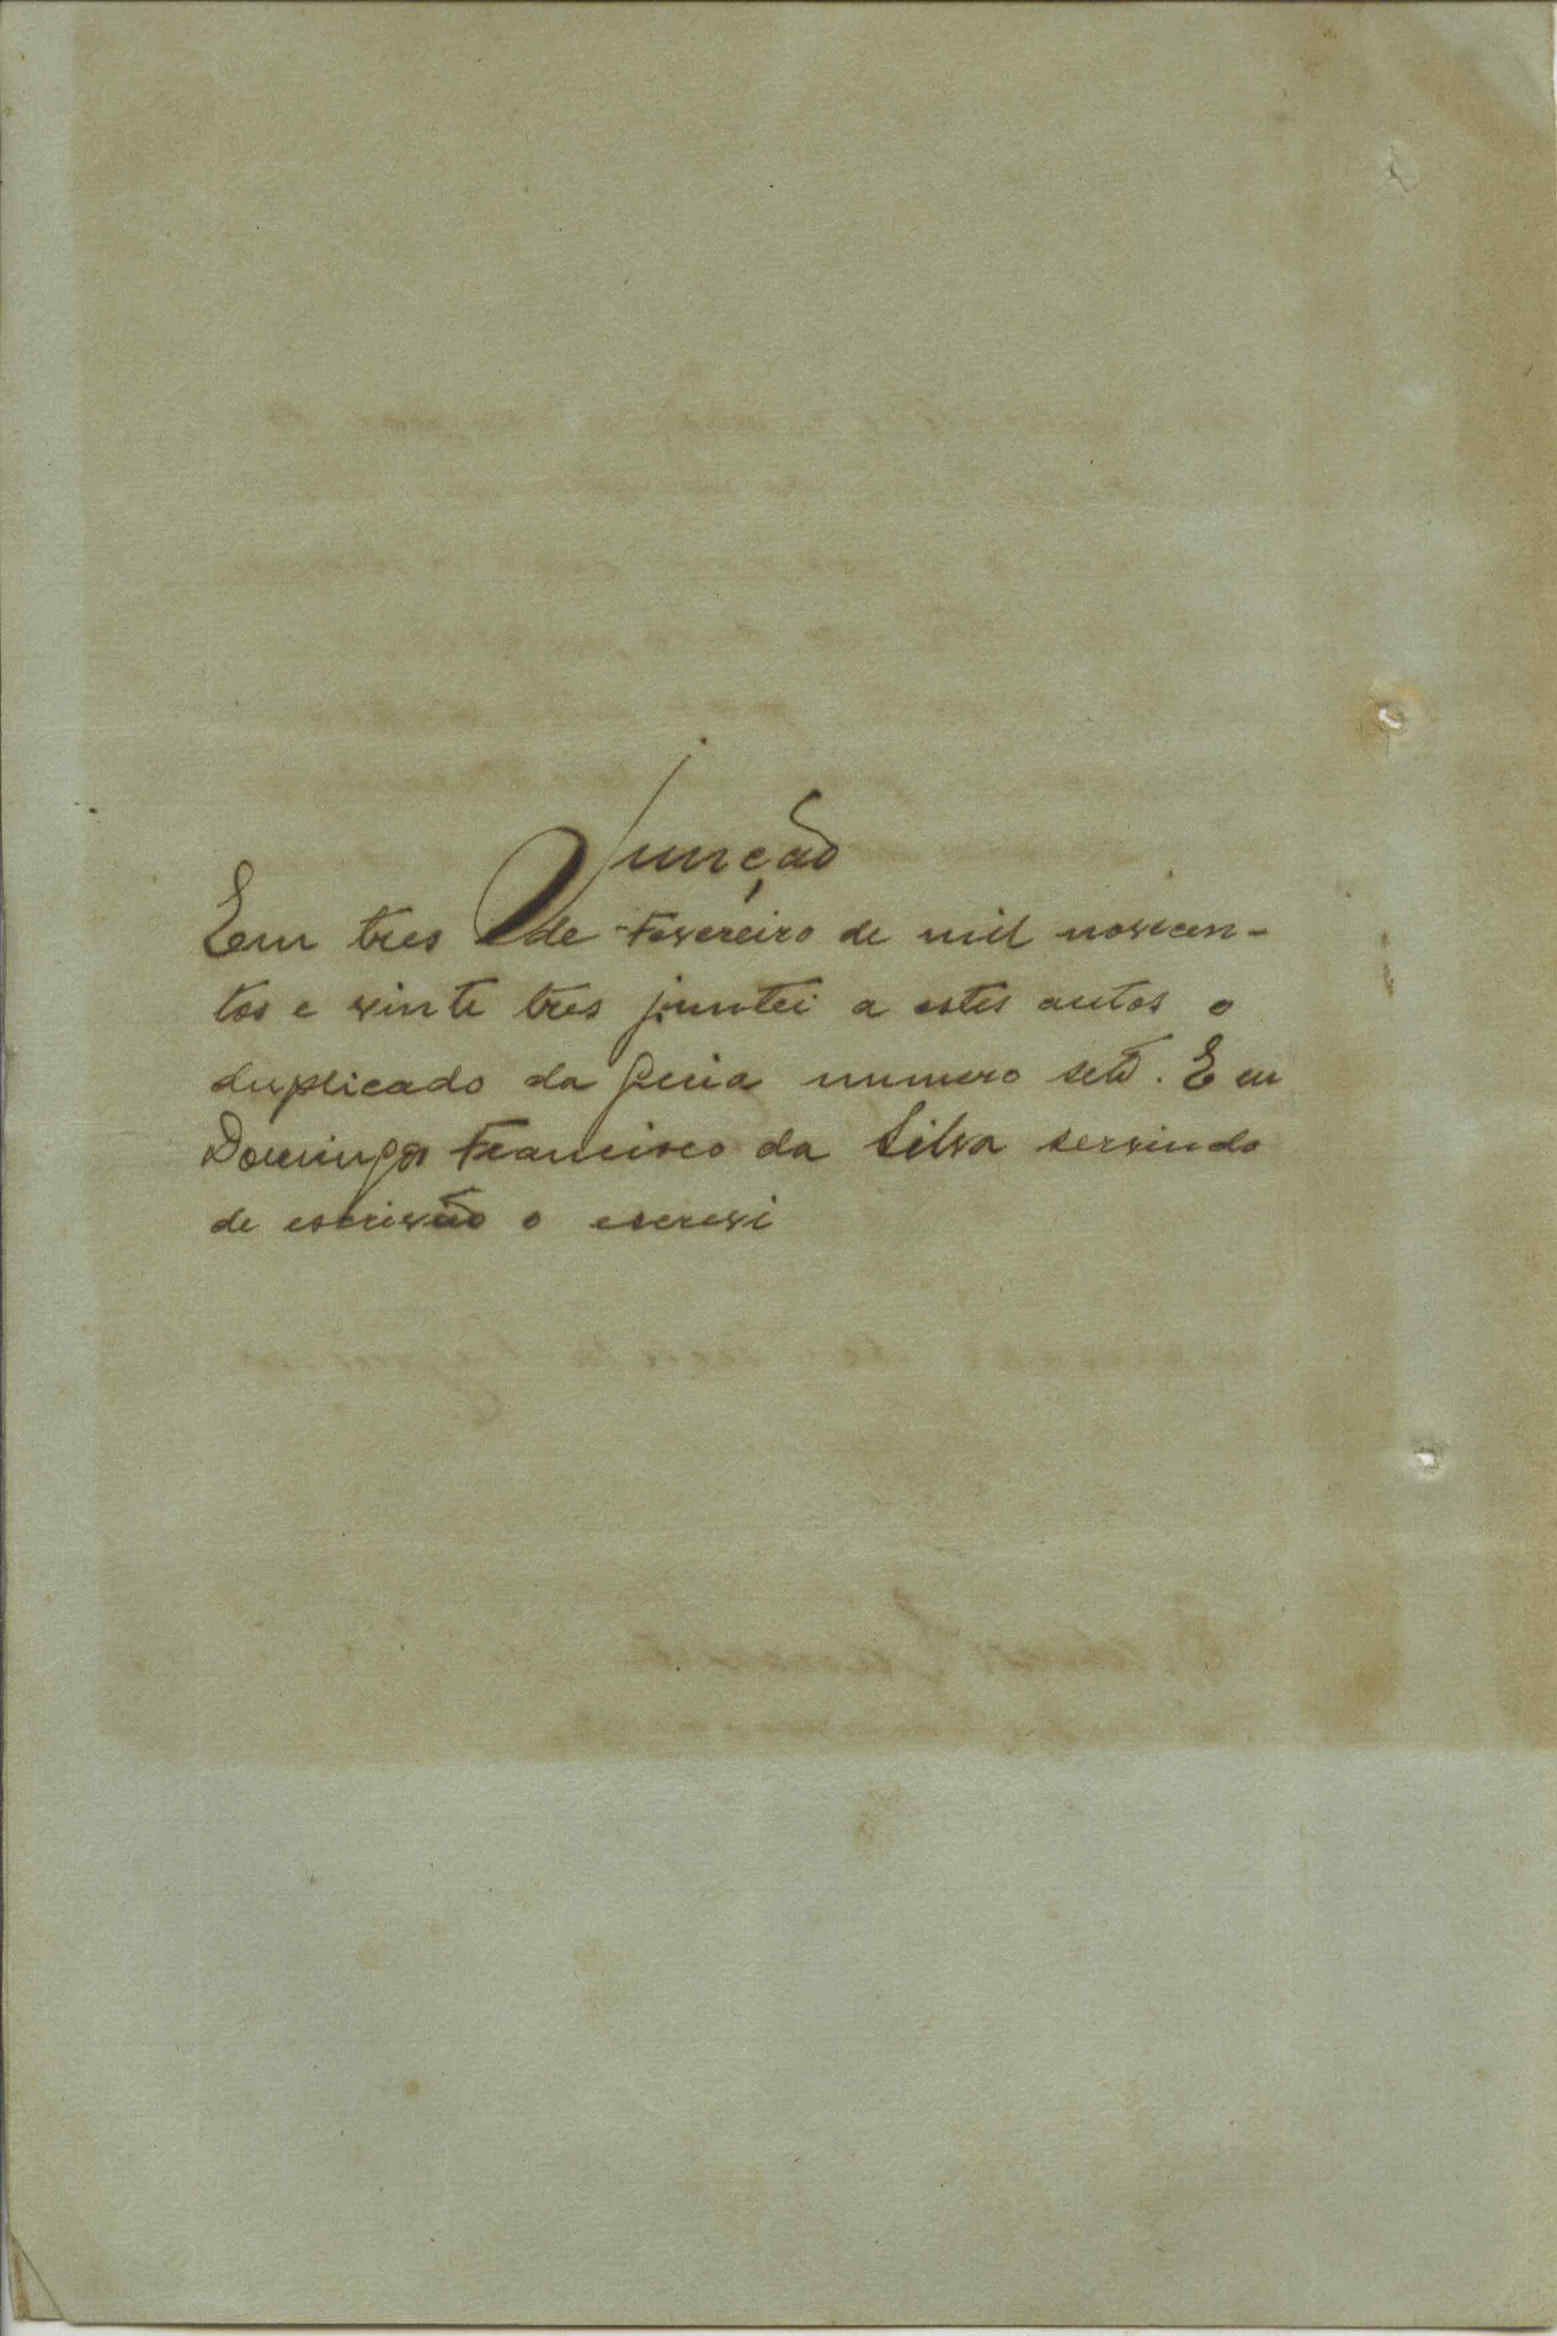 Junção
Em tres de Fevereiro de mil novecen-
tos e vinte tres juntei a estes autos o
duplicado da guia numero sete. E eu
Domingos Francisco da Silva servindo
de escrivão o escrevi